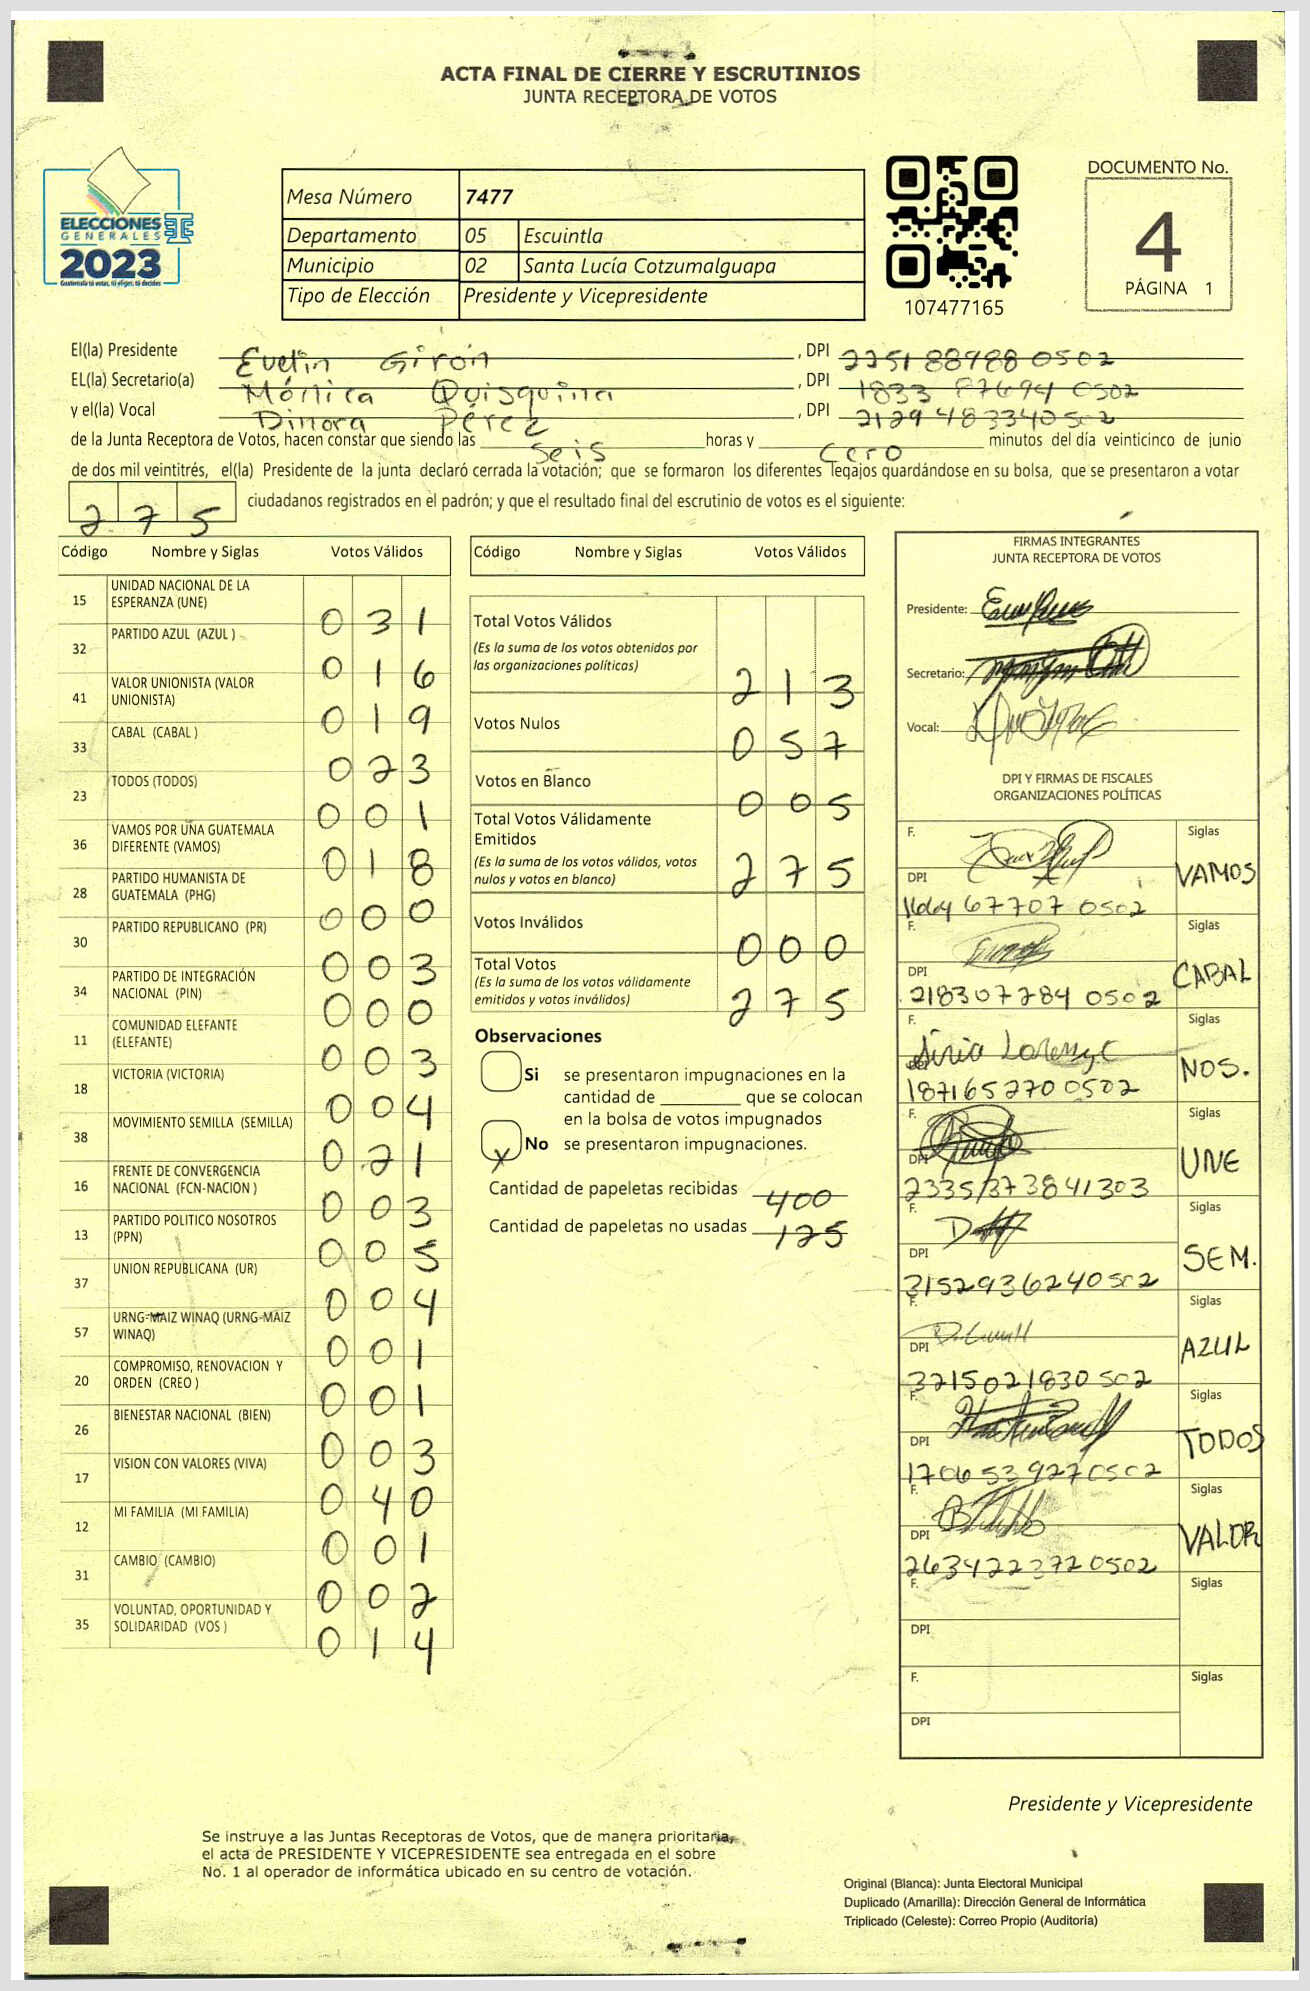 ACTA FINAL DE CIERRE Y ESCRUTINIOS
JUNTA RECEPTORA DE VOTOS
ELECCIONES
GENERALES
2023
Guatemala tú votas, tú eliges, tú decides
Mesa Número 7477
Departamento 05 Escuintla
Municipio 02 Santa Lucía Cotzumalguapa
Tipo de Elección Presidente y Vicepresidente
107477165
DOCUMENTO No.
4
PÁGINA 1
El(la) Presidente Evelin Girón , DPI 2251 88988 0502
EL(la) Secretario(a) Mónica Quisquina , DPI 1833 87694 0502
y el(la) Vocal Dinora Pérez , DPI 2129 48334 0502
de la Junta Receptora de Votos, hacen constar que siendo las seis horas y cero minutos del día veinticinco de junio
de dos mil veintitrés, el(la) Presidente de la junta declaró cerrada la votación; que se formaron los diferentes legajos guardándose en su bolsa, que se presentaron a votar
275 ciudadanos registrados en el padrón; y que el resultado final del escrutinio de votos es el siguiente:
Código Nombre y Siglas Votos Válidos
15 UNIDAD NACIONAL DE LA
ESPERANZA (UNE) 031
32 PARTIDO AZUL (AZUL ) 016
41 VALOR UNIONISTA (VALOR
UNIONISTA) 019
33 CABAL (CABAL ) 023
23 TODOS (TODOS) 001
36 VAMOS POR UNA GUATEMALA
DIFERENTE (VAMOS) 018
28 PARTIDO HUMANISTA DE
GUATEMALA (PHG) 000
30 PARTIDO REPUBLICANO (PR) 003
34 PARTIDO DE INTEGRACIÓN
NACIONAL (PIN) 000
11 COMUNIDAD ELEFANTE
(ELEFANTE) 003
18 VICTORIA (VICTORIA) 004
38 MOVIMIENTO SEMILLA (SEMILLA) 021
16 FRENTE DE CONVERGENCIA
NACIONAL (FCN-NACION ) 003
13 PARTIDO POLITICO NOSOTROS
(PPN) 005
37 UNION REPUBLICANA (UR) 004
57 URNG-MAIZ WINAQ (URNG-MAIZ
WINAQ) 001
20 COMPROMISO, RENOVACION Y
ORDEN (CREO ) 001
26 BIENESTAR NACIONAL (BIEN) 003
17 VISION CON VALORES (VIVA) 040
12 MI FAMILIA (MI FAMILIA) 001
31 CAMBIO (CAMBIO) 002
35 VOLUNTAD, OPORTUNIDAD Y
SOLIDARIDAD (VOS ) 014
Código Nombre y Siglas Votos Válidos
Total Votos Válidos
(Es la suma de los votos obtenidos por
las organizaciones políticas) 213
Votos Nulos 057
Votos en Blanco 005
Total Votos Válidamente
Emitidos
(Es la suma de los votos válidos, votos
nulos y votos en blanco) 275
Votos Inválidos 000
Total Votos
(Es la suma de los votos válidamente
emitidos y votos inválidos) 275
Observaciones
Si se presentaron impugnaciones en la
cantidad de ________ que se colocan
en la bolsa de votos impugnados
X No se presentaron impugnaciones.
Cantidad de papeletas recibidas 400
Cantidad de papeletas no usadas 125
FIRMAS INTEGRANTES
JUNTA RECEPTORA DE VOTOS
Presidente:
Secretario:
Vocal:
DPI Y FIRMAS DE FISCALES
ORGANIZACIONES POLÍTICAS
F. Siglas
DPI VAMOS
1664 67707 0502
F. Siglas
DPI CABAL
218307784 0502
F. Siglas
DPI NOS.
1871652700502
F. Siglas
DPI UNE
2335373841303
F. Siglas
DPI SEM.
3152936240502
F. Siglas
DPI AZUL
3215021830502
F. Siglas
DPI TODOS
1706539270502
F. Siglas
DPI VALOR
2634223720502
F. Siglas
DPI
F. Siglas
DPI
Presidente y Vicepresidente
Se instruye a las Juntas Receptoras de Votos, que de manera prioritaria,
el acta de PRESIDENTE Y VICEPRESIDENTE sea entregada en el sobre
No. 1 al operador de informática ubicado en su centro de votación.
Original (Blanca): Junta Electoral Municipal
Duplicado (Amarilla): Dirección General de Informática
Triplicado (Celeste): Correo Propio (Auditoría)